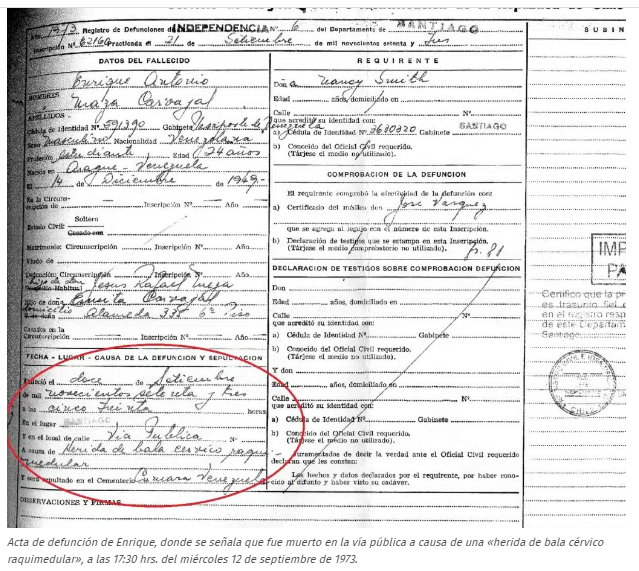 Año 1973 Registro de Defunciones de INDEPENDENCIA Nº 6 del Departamento de SANTIAGO
Inscripción Nº Practicada el 21 de Setiembre de mil novecientos setenta y tres
SUB IN
DATOS DEL FALLECIDO
Enrique Antonio
NOMBRES
Maza Carvajal
APELLIDOS
de Identidad Nº 591390 Gabinete Pasaporte de Venezuela
Sexo masculino Nacionalidad Venezolana
Profesión estudiante Edad 24 años
Nacido en Aragua Venezuela
El 14 de Diciembre de 1949
En la Circunscripción de Inscripción Nº Año
Soltero
Estado Civil:
Casado con
Matrimonio: Circunscripción Inscripción Nº Año
Viudo de
Defunción: Circunscripción Inscripción Nº Año
hijo de don Jesús Rafael
hijo de doña Carvajal
domicilio Alameda 335 6º Piso
Casados en la
Circunscripción Inscripción Nº Año
FECHA - LUGAR - CAUSA DE LA DEFUNCION Y SEPULTACION
Falleció el doce de Setiembre
de mil novecientos setenta y tres
a las cinco treinta horas
En el lugar SANTIAGO
Y en el local de calle Vía Pública Nº
A causa de herida de bala cervico raqui-
medular
Y será sepultado en el Cementerio Cumaná Venezuela
OBSERVACIONES Y FIRMAS
REQUIRENTE
Don ña Nancy Smith
Edad años, domiciliado en
Calle Nº
que acreditó su identidad con:
a) Cédula de Identidad Nº 3630320 Gabinete SANTIAGO
b) Conocido del Oficial Civil requerido.
(Tárjese el medio no utilizado).
COMPROBACION DE LA DEFUNCION
El requirente comprobó la efectividad de la defunción con:
a) Certificado del médico don José Vásquez
que se agrega al legajo con el número de esta Inscripción.
b) Declaración de testigos que se estampa en esta Inscripción.
(Tárjese el medio comprobatorio no utilizado).
DECLARACION DE TESTIGOS SOBRE COMPROBACION DEFUNCION
Don
Edad años, domiciliado en
Calle Nº
que acreditó su identidad con:
a) Cédula de Identidad Nº Gabinete
b) Conocido del Oficial Civil requerido.
(Tárjese el medio no utilizado).
Y don
Edad años, domiciliado en
Calle Nº
que acreditó su identidad con:
a) Cédula de Identidad Nº Gabinete
b) Conocido del Oficial Civil requerido.
(Tárjese el medio no utilizado).
Juramentados de decir la verdad ante el Oficial Civil
declaran que les constan:
Los hechos y datos declarados por el requirente, por haber cono-
cido al difunto y haber visto su cadáver.
IMP
PA
Certifico que la pr
es trasunto fiel d
en el registro resp
de este Departam
Santiago,
CHILE
Acta de defunción de Enrique, donde se señala que fue muerto en la vía pública a causa de una «herida de bala cérvico
raquimedular», a las 17:30 hrs. del miércoles 12 de septiembre de 1973.